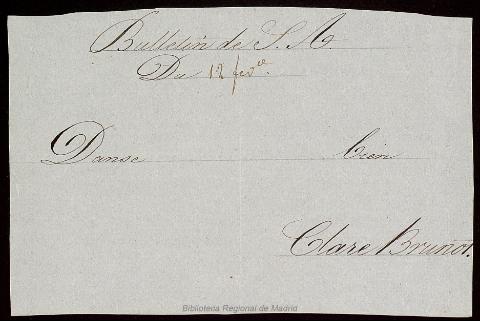 Bulletin de S. A.
Du 12 fevr.
Danse bien
Clare Brunot.
Biblioteca Regional de Madrid